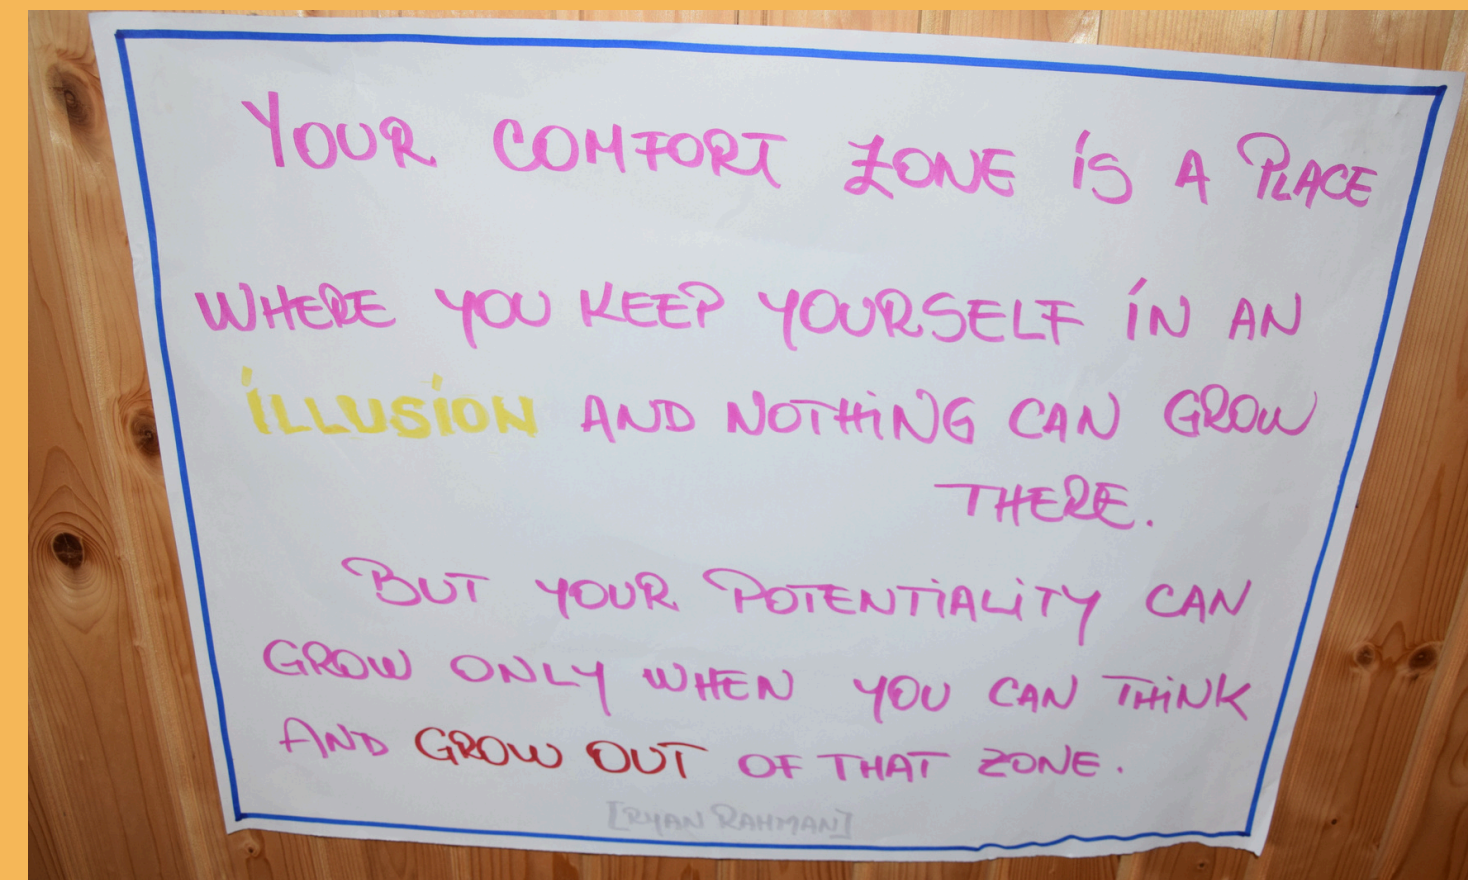 YOUR COMFORT ZONE iS A PLACE
WHERE YOU KEEP YOURSELF iN AN
iLLUSiON AND NOTHiNG CAN GROW
THERE.
BUT YOUR POTENTiALiTY CAN
GROW ONLY WHEN YOU CAN THiNK
AND GROW OUT OF THAT ZONE.
[RYAN RAHMAN]